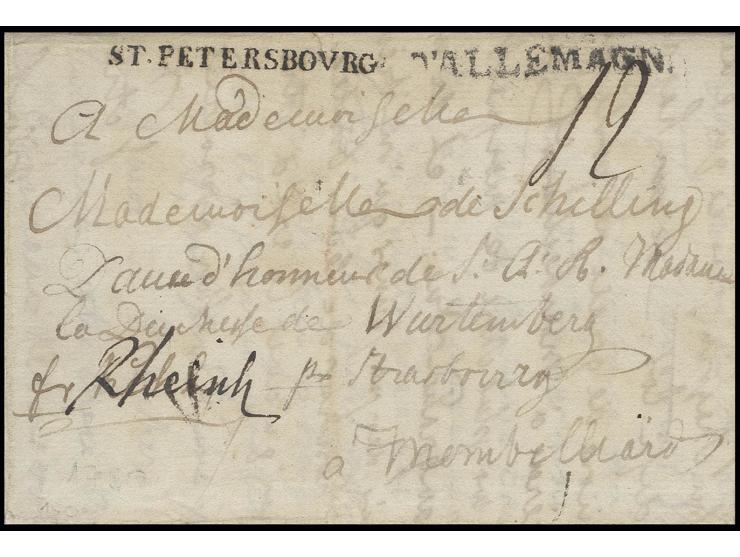 ST. PETERSBOVRG D'ALLEMAGNE
12
A Mademoiselle
Mademoiselle de Schilling
Dame d'honneur de S. A. R. Madame
la Duchesse de Wurtemberg
fr Rheinh pr Strasbourg
a Mombelliard